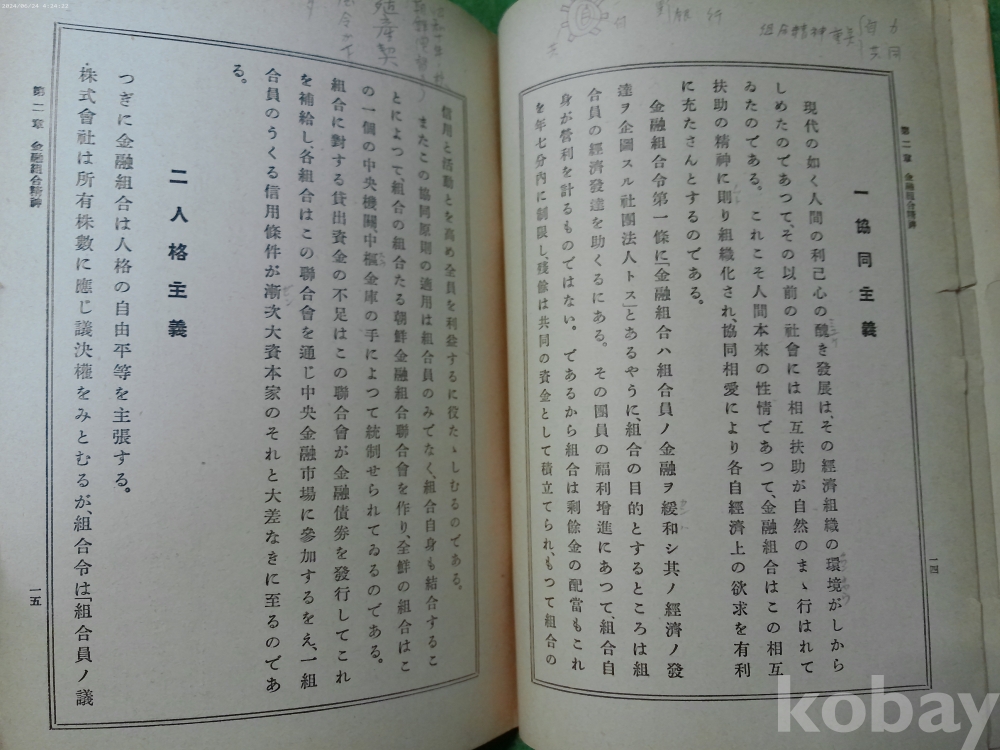 2024/06/24 4:24:22
組合精神
銀行
第二章 金融組合精神
一 協同主義
現代の如く人間の利己心の醜き發展は、その經濟組織の環境がしから
しめたのであつて、その以前の社會には相互扶助が自然のまゝ行はれて
ゐたのである。これこそ人間本來の性情であつて、金融組合はこの相互
扶助の精神に則り組織化され、協同相愛により各自經濟上の欲求を有利
に充たさんとするのである。
金融組合令第一條に「金融組合ハ組合員ノ金融ヲ緩和シ其ノ經濟ノ發
達ヲ企圖スル社團法人トス」とあるやうに、組合の目的とするところは組
合員の經濟發達を助くるにある。その團員の福利增進にあつて、組合自
身が營利を計るものではない。であるから組合は剩餘金の配當もこれ
を年七分內に制限し、殘餘は共同の資金として積立てられ、もつて組合の
一四
殖産契
信用と活動とを高め全員を利益するに役たゝしむるのである。
またこの協同原則の適用は組合員のみでなく、組合自身も結合するこ
とによつて、組合の組合たる朝鮮金融組合聯合會を作り、全鮮の組合はこ
の一個の中央機關、中樞金庫の手によつて統制せられてゐるのである。
組合に對する貸出資金の不足はこの聯合會が金融債劵を發行してこれ
を補給し、各組合はこの聯合會を通じ中央金融市場に參加するをえ、一組
合員のうくる信用條件が漸次大資本家のそれと大差なきに至るのであ
る。
二 人格主義
つぎに金融組合は人格の自由平等を主張する。
株式會社は所有株數に應じ議決權をみとむるが、組合令は「組合員ノ議
第二章 金融組合精神
一五
kobay